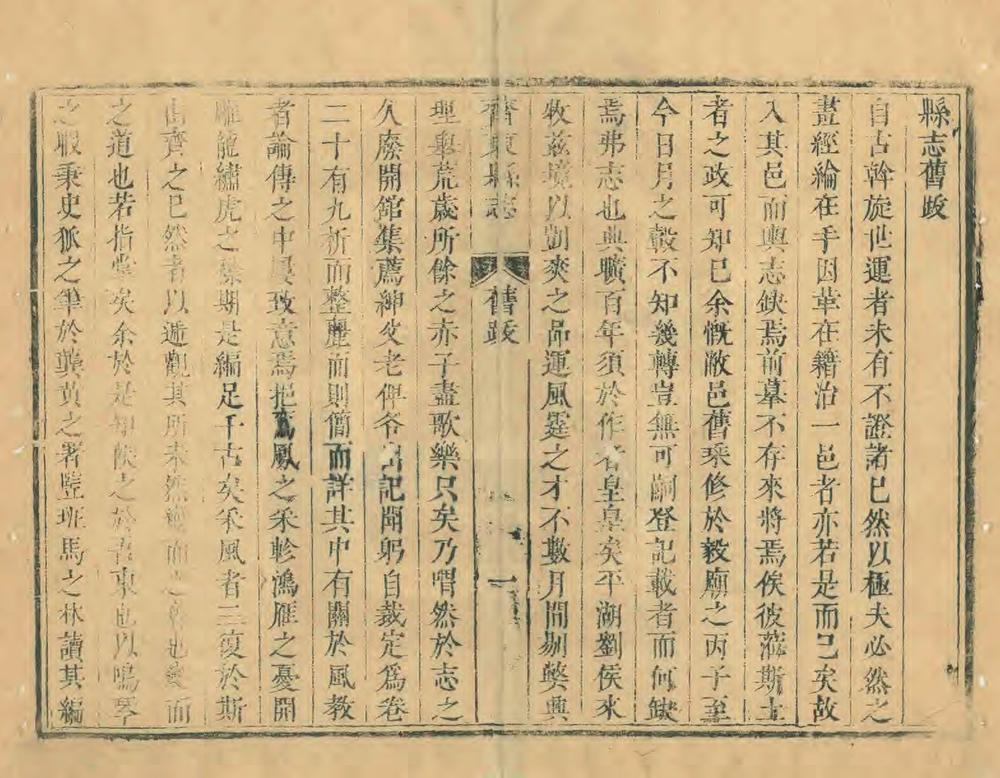 縣志舊跋
自古斡旋世運者未有不證諸已然以極夫必然之
畫經綸在乎因革在籍治一邑者亦若是而已矣故
入其邑而輿志缺焉前摹不存來將焉俟彼蒞斯土
者之政可知已余慨敝邑舊乘修於毅廟之丙子至
今日月之轂不知幾轉豈無可嗣登記載者而何缺
焉弗志也典曠百年須於作者皇皇矣平湖劉侯來
牧茲境以剴爽之品運風霆之才不數月間剔獘興
齊東縣志 舊跋 一
理與荒歲所餘之赤子盡歌樂只矣乃喟然於志之
久廢開館集薦紳父老俾各出記聞躬自裁定為卷
二十有九析而整麗而則簡而詳其中有關於風教
者論傳之中屢致意焉挹鸞鳳之采軫鴻雁之憂開
雕龍繡虎之 期是編足千古矣采風者三復於斯
由齊之已然者以遞觀其所未然 而之 也 而
之道也若指掌矣余於是知侯之於齊東也以鳴琴
之暇秉史狐之筆於龔黃之署登班馬之林讀其編